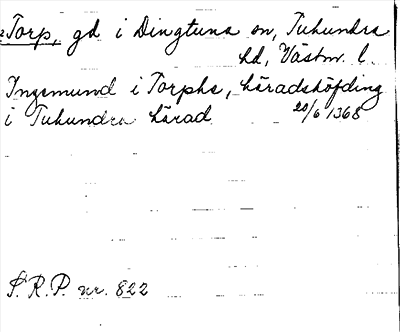 Torp, gd i Dingtuna sn, Tuhundra
hd, Västm. l.
Ingemund i Torpha, häradshöfding
i Tuhundra härad 20/6 1368
S.R.P. nr. 822